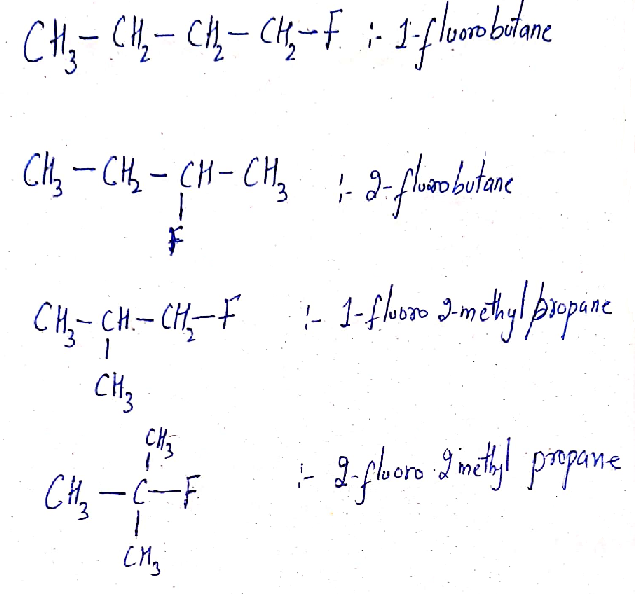 CH₃ – CH₂ – CH₂ – CH₂ – F :- 1-fluorobutane
CH₃ – CH₂ – CH – CH₃ :- 2-fluorobutane
F
CH₃ – CH – CH₂ – F :- 1-fluoro 2-methyl propane
CH₃
CH₃
CH₃ – C – F :- 2-fluoro 2 methyl propane
CH₃